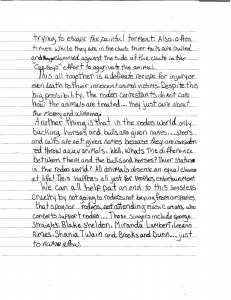 trying to escape the painful torment. Also, often
times while they are in the chute their tails are twisted
and against the side of the chute in the
"cowboys" effort to aggravate the animal.
This all together is a delicate recipe for injury or
even death to their innocent animal victims. Despite this
big possibility. The rodeo contestants do not care
how the animals are treated.... they just care about
the money and winning.
Another thing is that in the rodeo world only
bucking horses and bulls are given names.... steers
and calfs are not given names because they are
throw away animals. Well, whats the difference
between them and the bulls and horses? Their stature
in the rodeo world? All animals deserve an equal chance
at life! This happens all just for peoples entertainment
We can all help put an end to this senseless
cruelty by not going to rodeos, not buying from companies
that sponsor rodeos, not attending music artists who
concerts support rodeos.... Those singers include George
Straight, Blake Sheldon, Miranda Lambert, Leann
Rimes, Shania Twain and Brooks and Dunn.... just
to name a few.